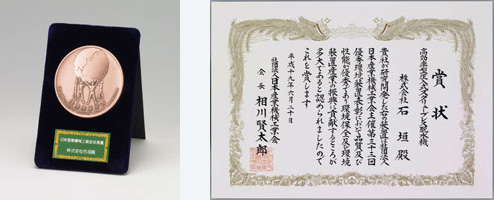 賞状
高効率型圧入式スクリュープレス脱水機
株式会社 石垣 殿
貴社が研究開発した右の装置は社団法人
日本産業機械工業会主催第三十三回
優秀環境装置表彰において品質及び
性能が優秀であり環境保全及び環境
装置産業の振興に貢献するところが
多大であると認められましたので
これを賞します
平成十九年六月二十日
社団法人日本産業機械工業会
会長 相川賢太郎
株式会社石垣殿